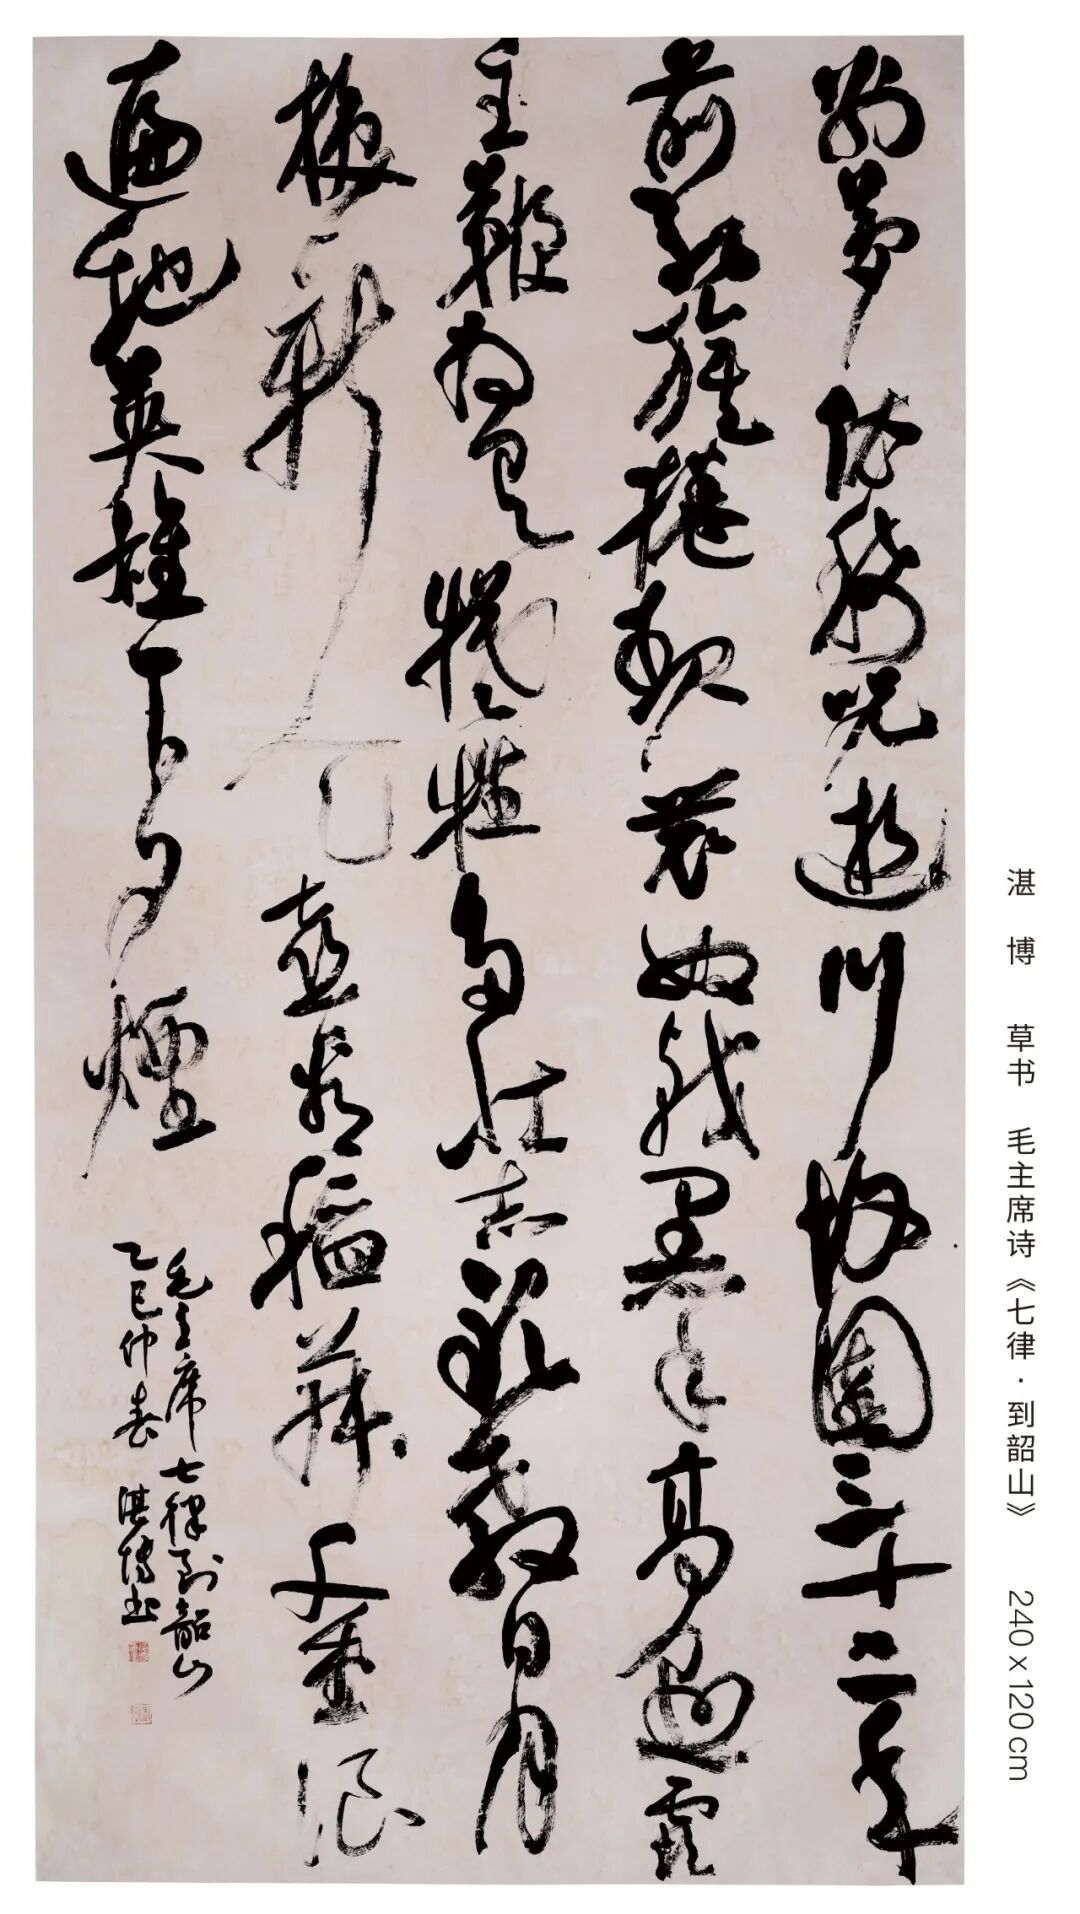 別夢依稀咒逝川故園三十二年
前紅旗捲起農奴戟黑手高懸霸
主鞭為有犧牲多壯志敢教日月
換新天喜看稻菽千重浪
遍地英雄下夕煙
毛主席七律到韶山
乙巳仲春 湛博书
湛博 草书 毛主席诗《七律·到韶山》 240 x 120 cm